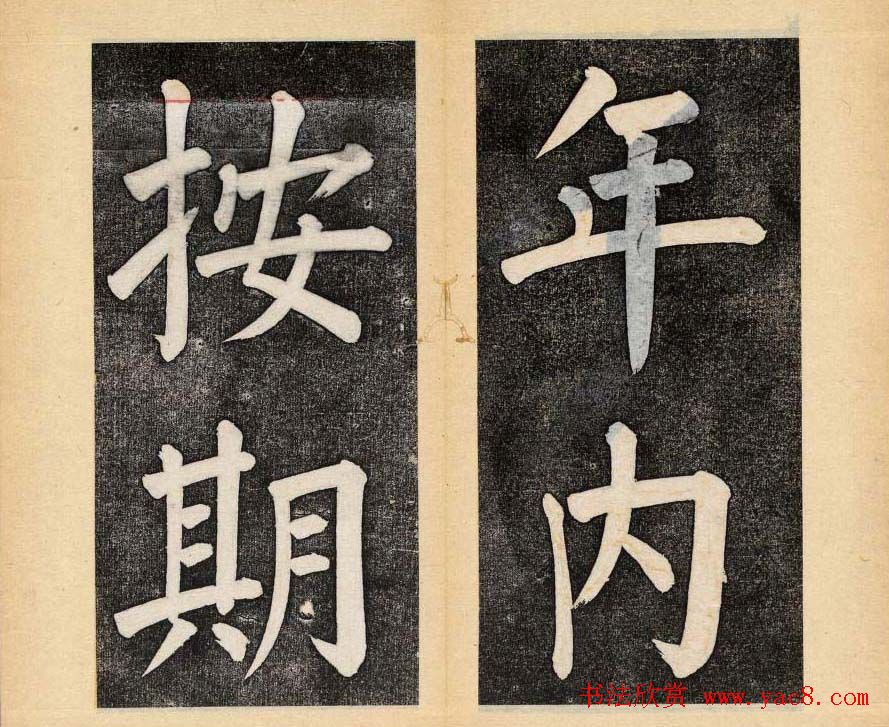 年内
按期
书法欣赏 www.yac8.com